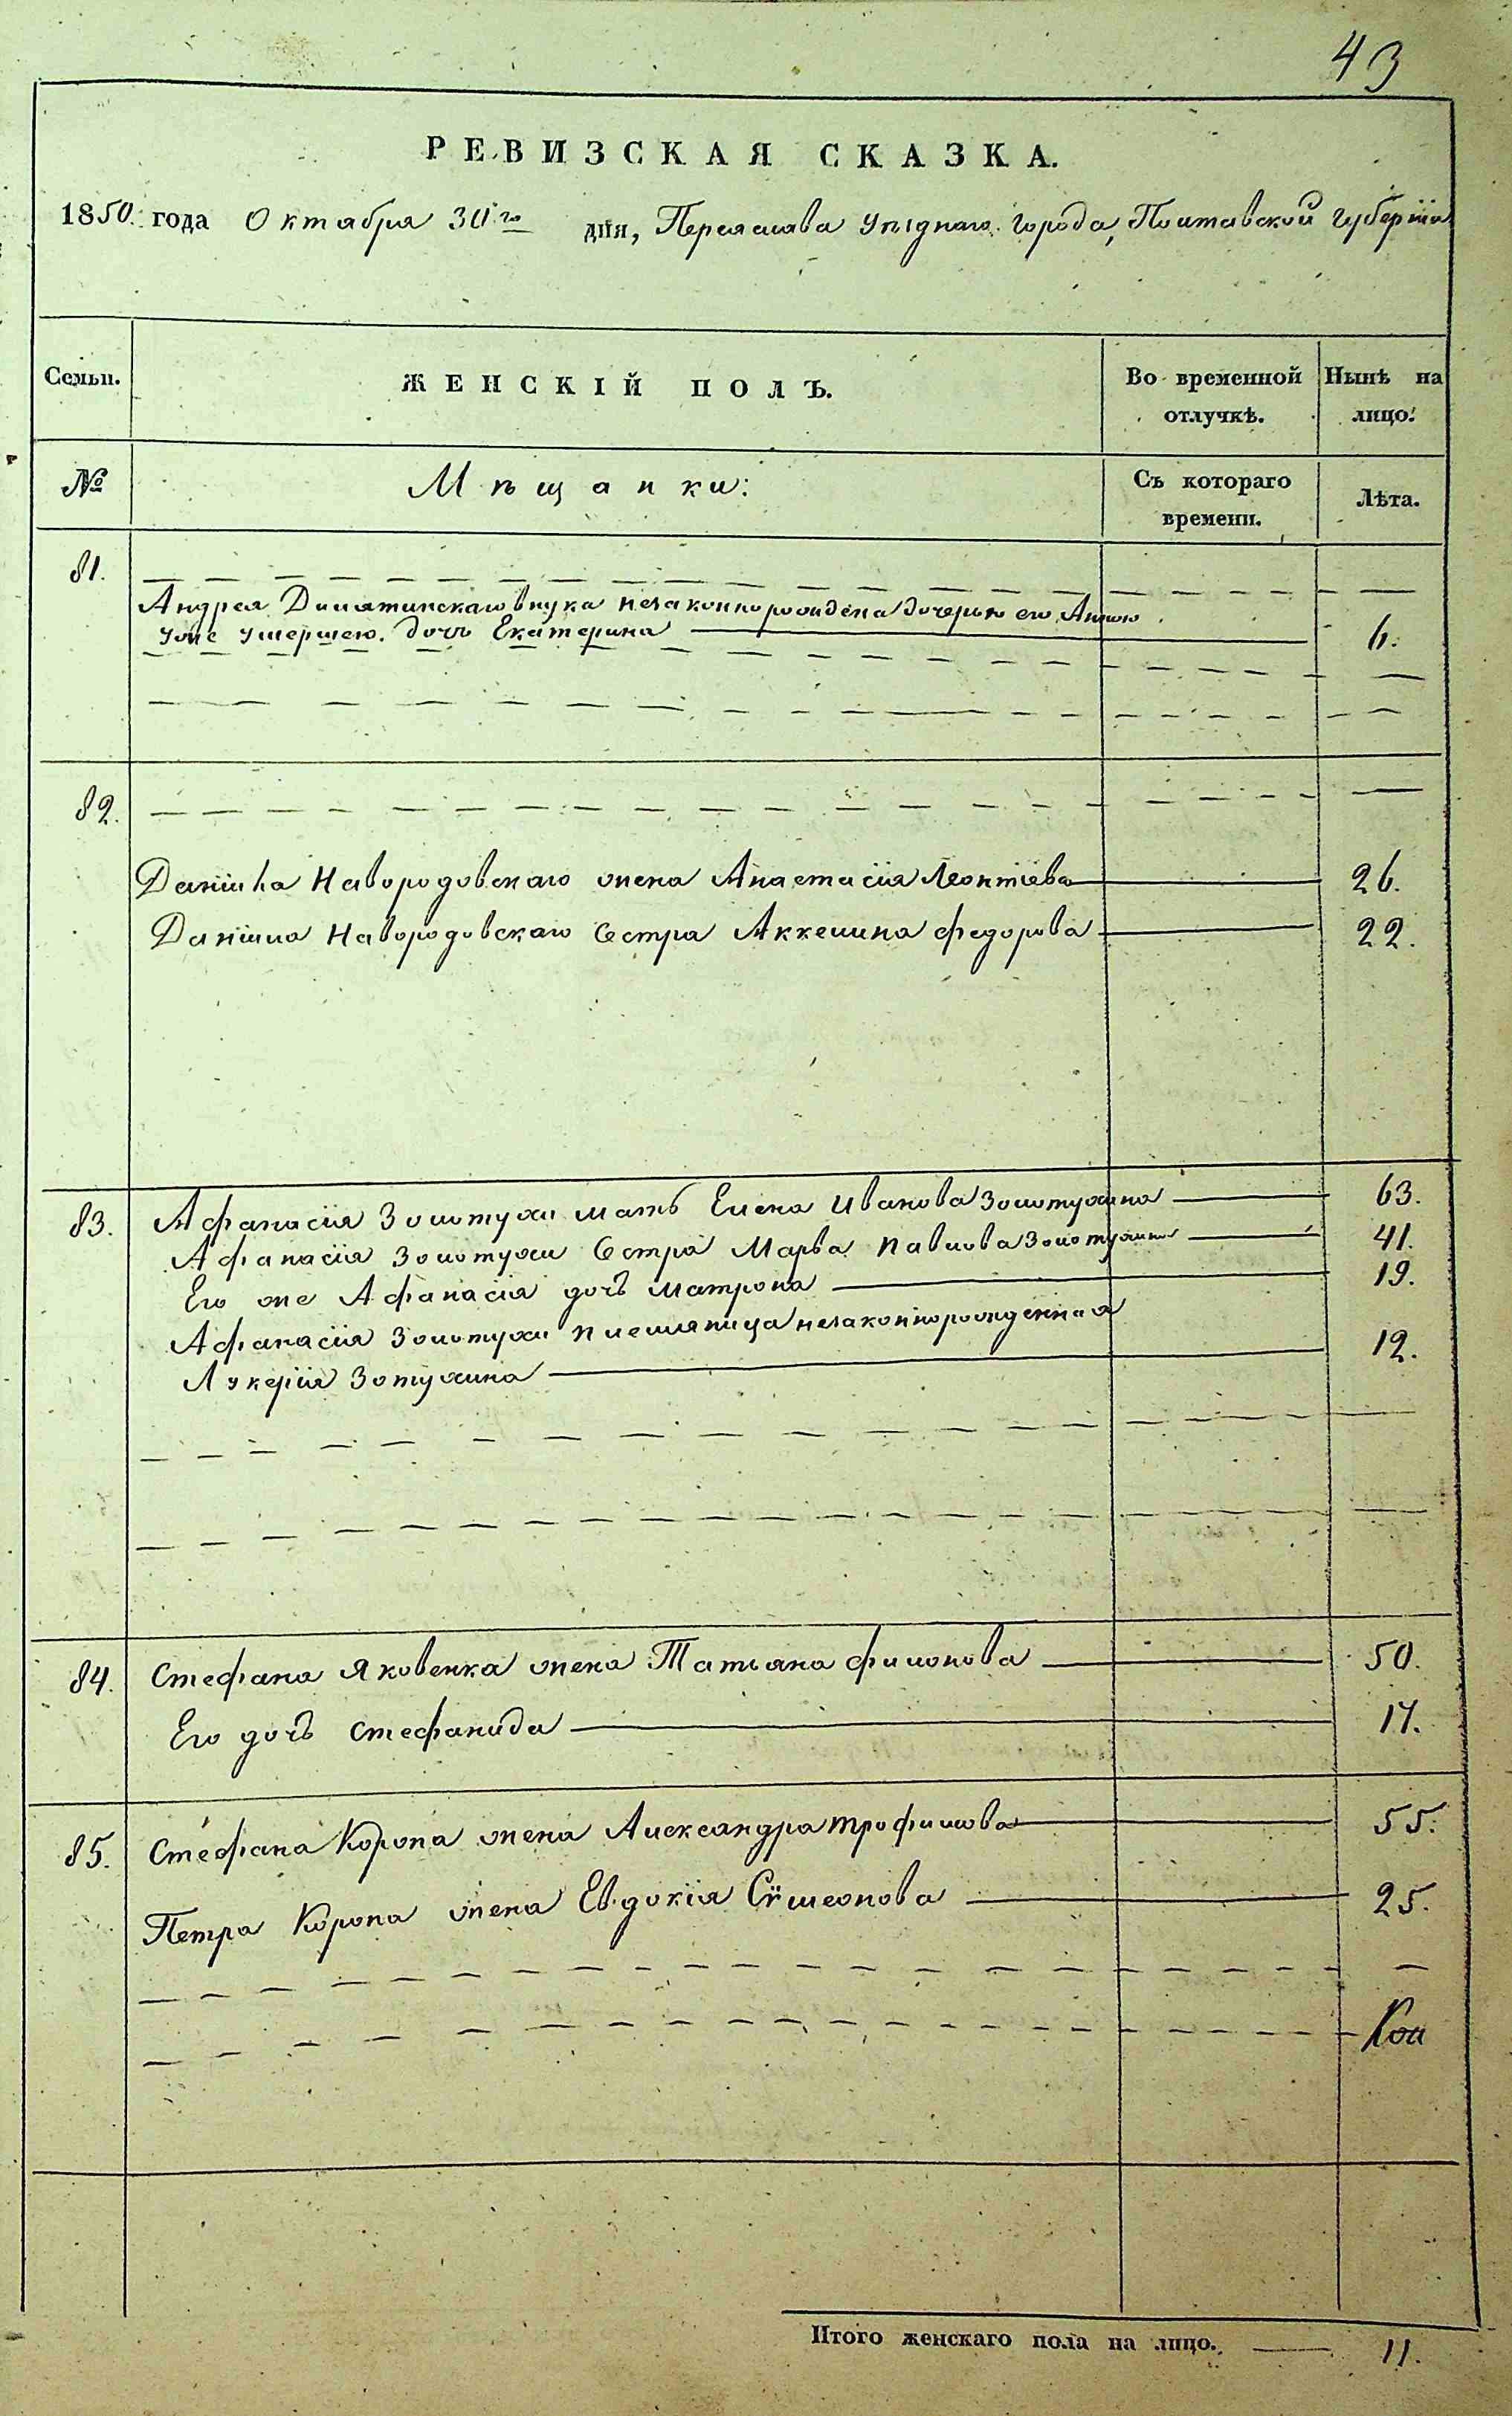 43
РЕВИЗСКАЯ СКАЗКА.
1850. года Октября 30го дня, Переяслава уѣзднаго города, Полтавской губерніи
Семьи. ЖЕНСКІЙ ПОЛЪ. Во временной отлучкѣ. Нынѣ на лицо.
№ Мѣщанки: Съ котораго времени. Лѣта.
81.
Андрея внука незаконнорождена дочерью его Анною
уже умершею. дочь Екатерина 6.
82.
Даніила Навородовскаго жена Анастасія Леонтіева 26.
Даніила Навородовскаго Сестра Аккелина Федорова 22.
83. Афанасія Золотухи мать Елена Иванова Золотухина 63.
Афанасія Золотухи Сестра Марва Павлова Золотухина 41.
Его же Афанасія дочь Матрона 19.
Афанасія Золотухи племяница незаконнорожденная
Лукерія Зотухина 12.
84. Стефана Яковенка жена Татіана Филонова 50.
Его дочь Стефанида 17.
85. Стефана Коропа жена Александра Трофимова 55.
Петра Коропа жена Евдокія Сѵмеонова 25.
Итого женскаго пола на лицо. 11.